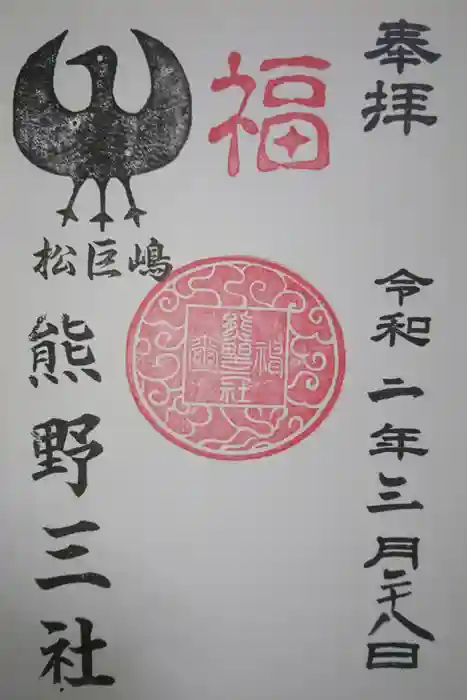 奉拝
令和二年三月二十八日
福
松巨嶋
熊野三社